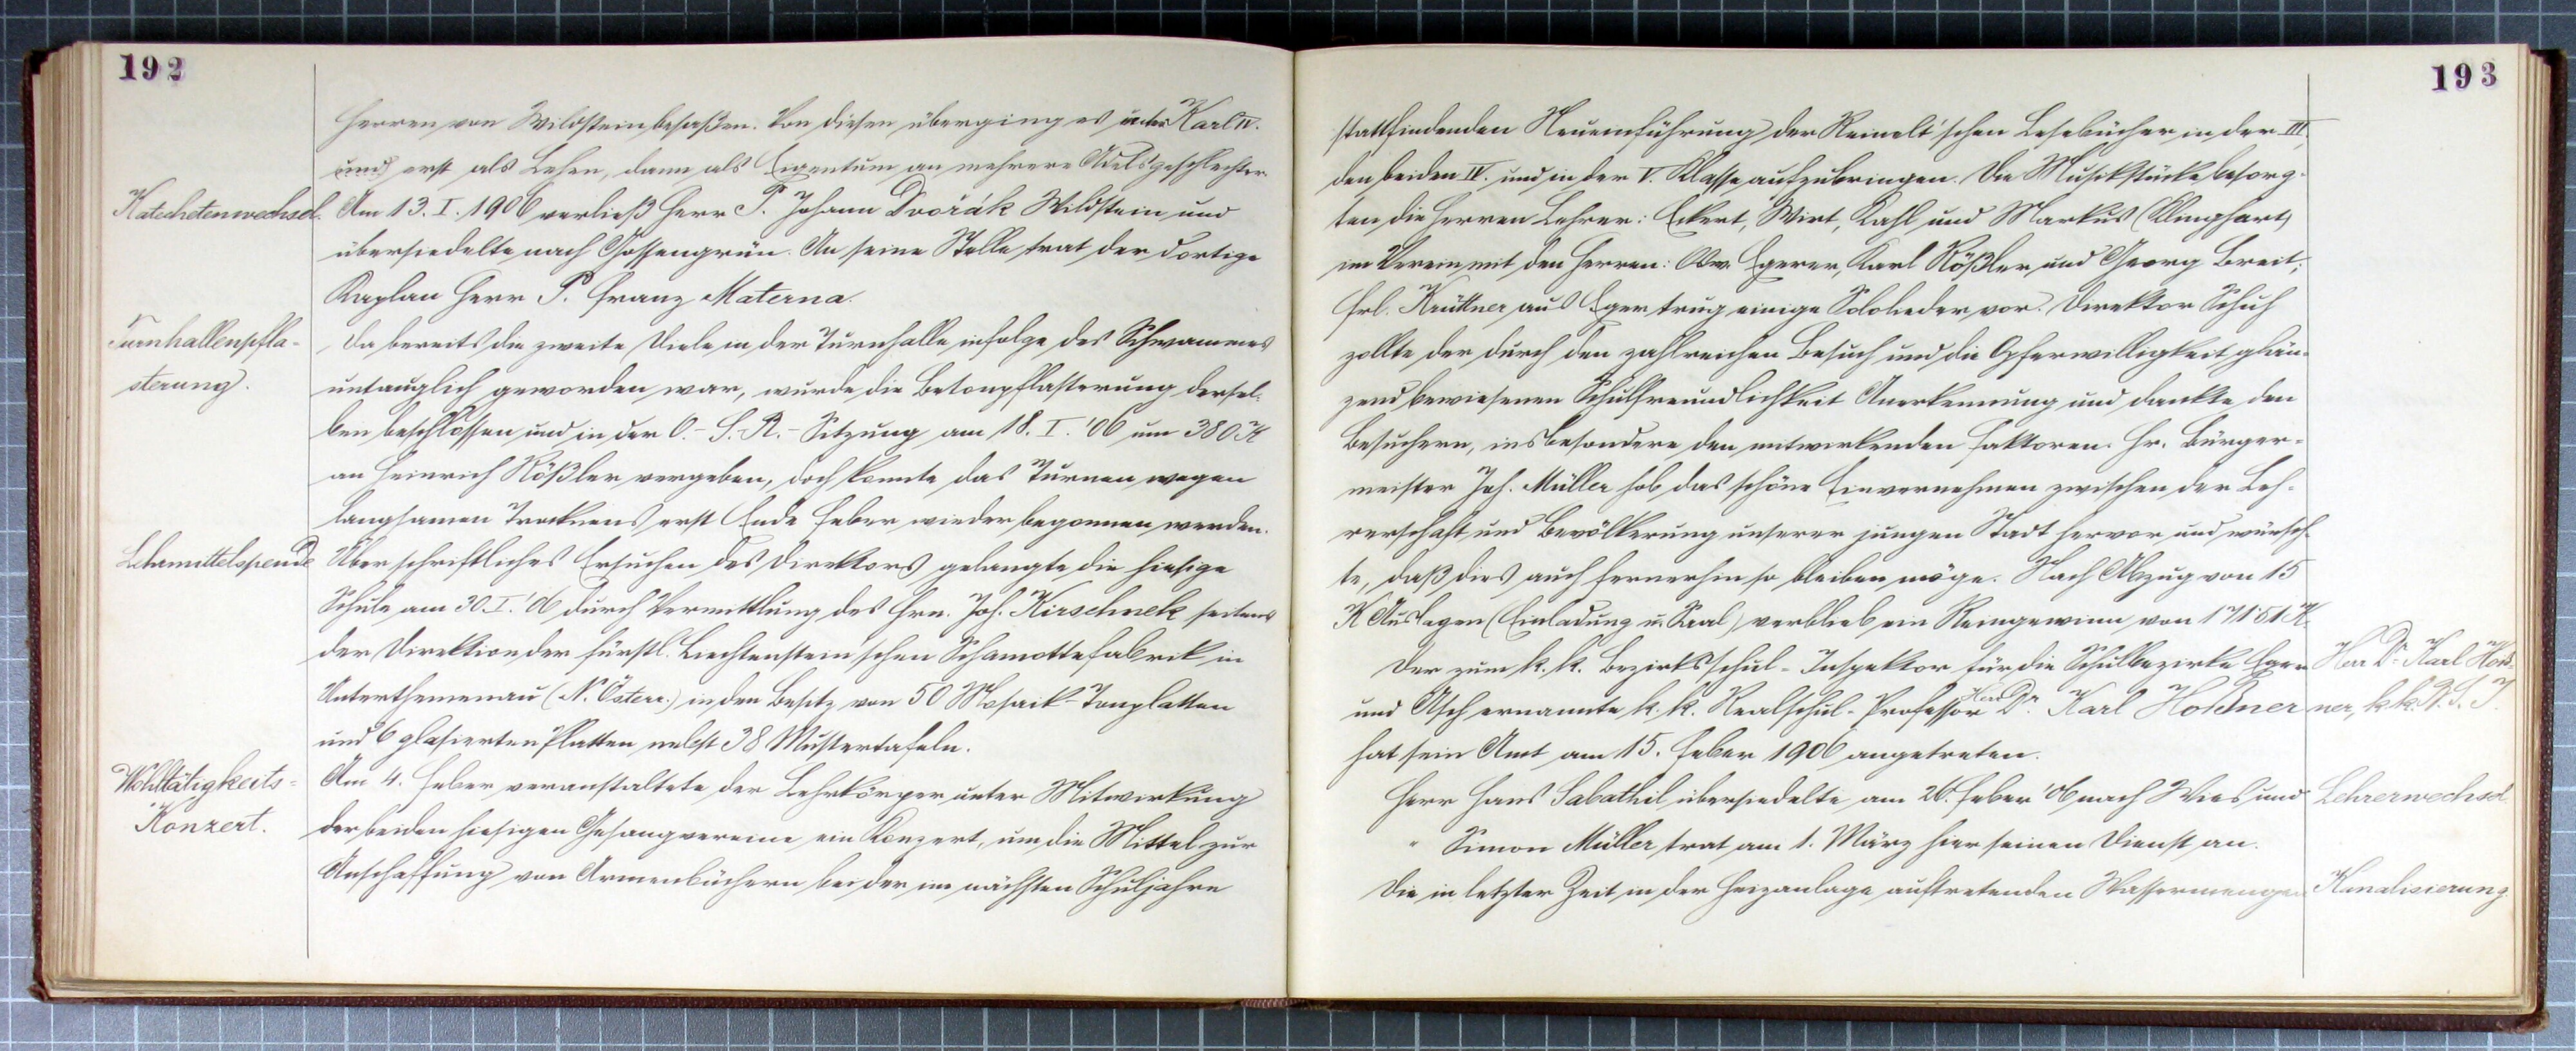 192
Herren von Wildstein besaßen. Von diesen überging es unter Karl IV.
und erst als Lehen, dann als Eigentum an mehrere Adelsgeschlechter.
Katechetenwechsel. Am 13. I. 1906 verließ Herr P. Johann Dvořák Wildstein und
übersiedelte nach Gossengrün. An seine Stelle trat der dortige
Kaplan Herr P. Franz Materna.
Turnhallenpfla- Da bereits die zweite Diele in der Turnhalle infolge des Schwammes
sterung. untauglich geworden war, wurde die Betonpflasterung dersel-
ben beschlossen und in der O.-S.-R.-Sitzung am 18. I. '06 um 380 K
an Heinrich Rößler vergeben, doch konnte das Turnen wegen
langsamen Trocknens erst Ende Feber wieder begonnen werden.
Lehrmittelspende Über schriftliches Ersuchen des Direktors gelangte die hiesige
Schule am 30. I. '06 durch Vermittlung des Hrn. Joh. Kirschnek seitens
der Direktion der fürstl. Liechtenstein'schen Schamottefabrik in
Unterthemenau (N. Österr.) in den Besitz von 50 Mosaik-Tonplatten
und 6 glasierten Platten nebst 38 Mustertafeln.
Wohltätigkeits- Am 4. Feber veranstaltete der Lehrkörper unter Mitwirkung
Konzert. der beiden hiesigen Gesangvereine ein Konzert, um die Mittel zur
Anschaffung von Armenbüchern bei der im nächsten Schuljahre
193
stattfindenden Neueinführung der Reinelt'schen Lesebücher in der III.,
den beiden IV. und in der V. Klasse aufzubringen. Die Musikstücke besorg-
ten die Herren Lehrer: Ekert, Wirt, Kahl und Markus (Klinghart)
im Verein mit den Herren: Adw. Egerer, Karl Rößler und Georg Breit;
Frl. Krüttner aus Eger trug einige Sololieder vor. Direktor Schuh
zollte der durch den zahlreichen Besuch und die Opferwilligkeit glän-
zend bewiesenen Schulfreundlichkeit Anerkennung und dankte den
Besuchern, insbesondere den mitwirkenden Faktoren. Hr. Bürger-
meister Joh. Müller hob das schöne Einvernehmen zwischen der Leh-
rerschaft und Bevölkerung unserer jungen Stadt hervor und wünsch-
te, daß dies auch fernerhin so bleiben möge. Nach Abzug von 15
K Auslagen (Einladung u. Saal) verblieb ein Reingewinn von 171·51 K.
Der zum k. k. Bezirksschul-Inspektor für die Schulbezirke Eger Herr Dr. Karl Hoß-
und Asch ernannte k. k. Realschul-Professor Herr Dr. Karl Hoßner ner, k.k. B. S. I.
hat sein Amt am 15. Feber 1906 angetreten.
Herr Hans Sabathil übersiedelte am 26. Feber '06 nach Wies und Lehrerwechsel
" Simon Müller trat am 1. März hier seinen Dienst an.
Die in letzter Zeit in der Heizanlage auftretenden Wassermengen Kanalisierung.